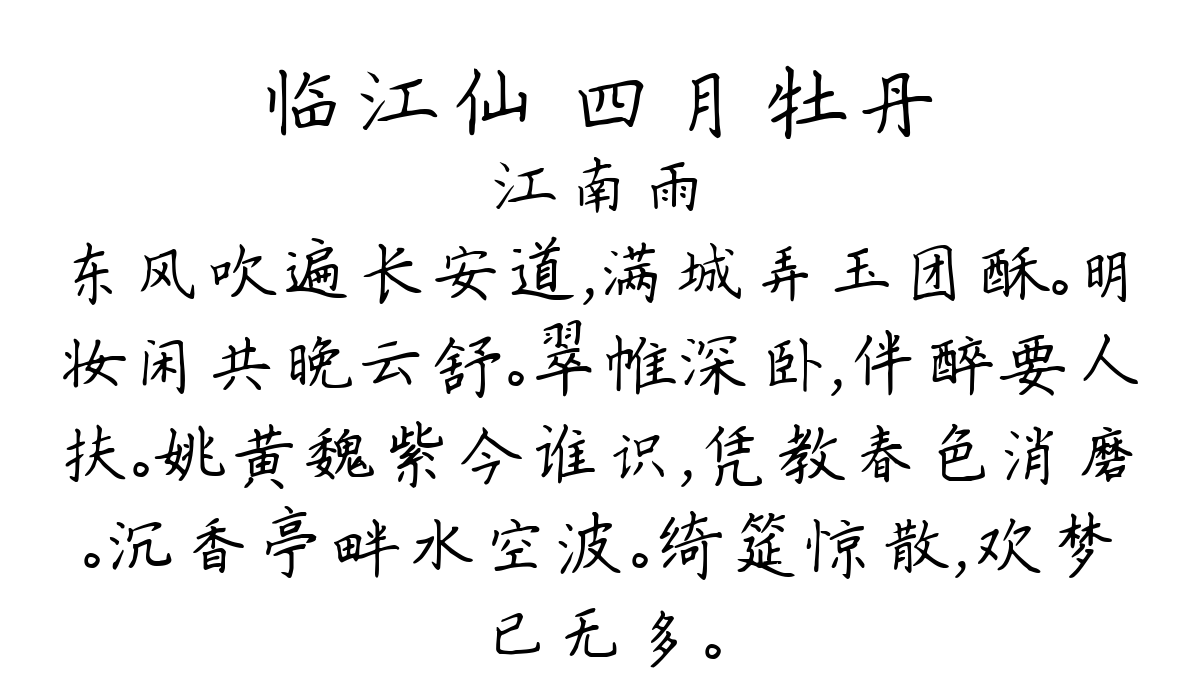 临江仙 四月牡丹
江南雨
东风吹遍长安道,满城弄玉团酥。明
妆闲共晚云舒。翠帷深卧,伴醉要人
扶。姚黄魏紫今谁识,凭教春色消磨
。沉香亭畔水空波。绮筵惊散,欢梦
已无多。